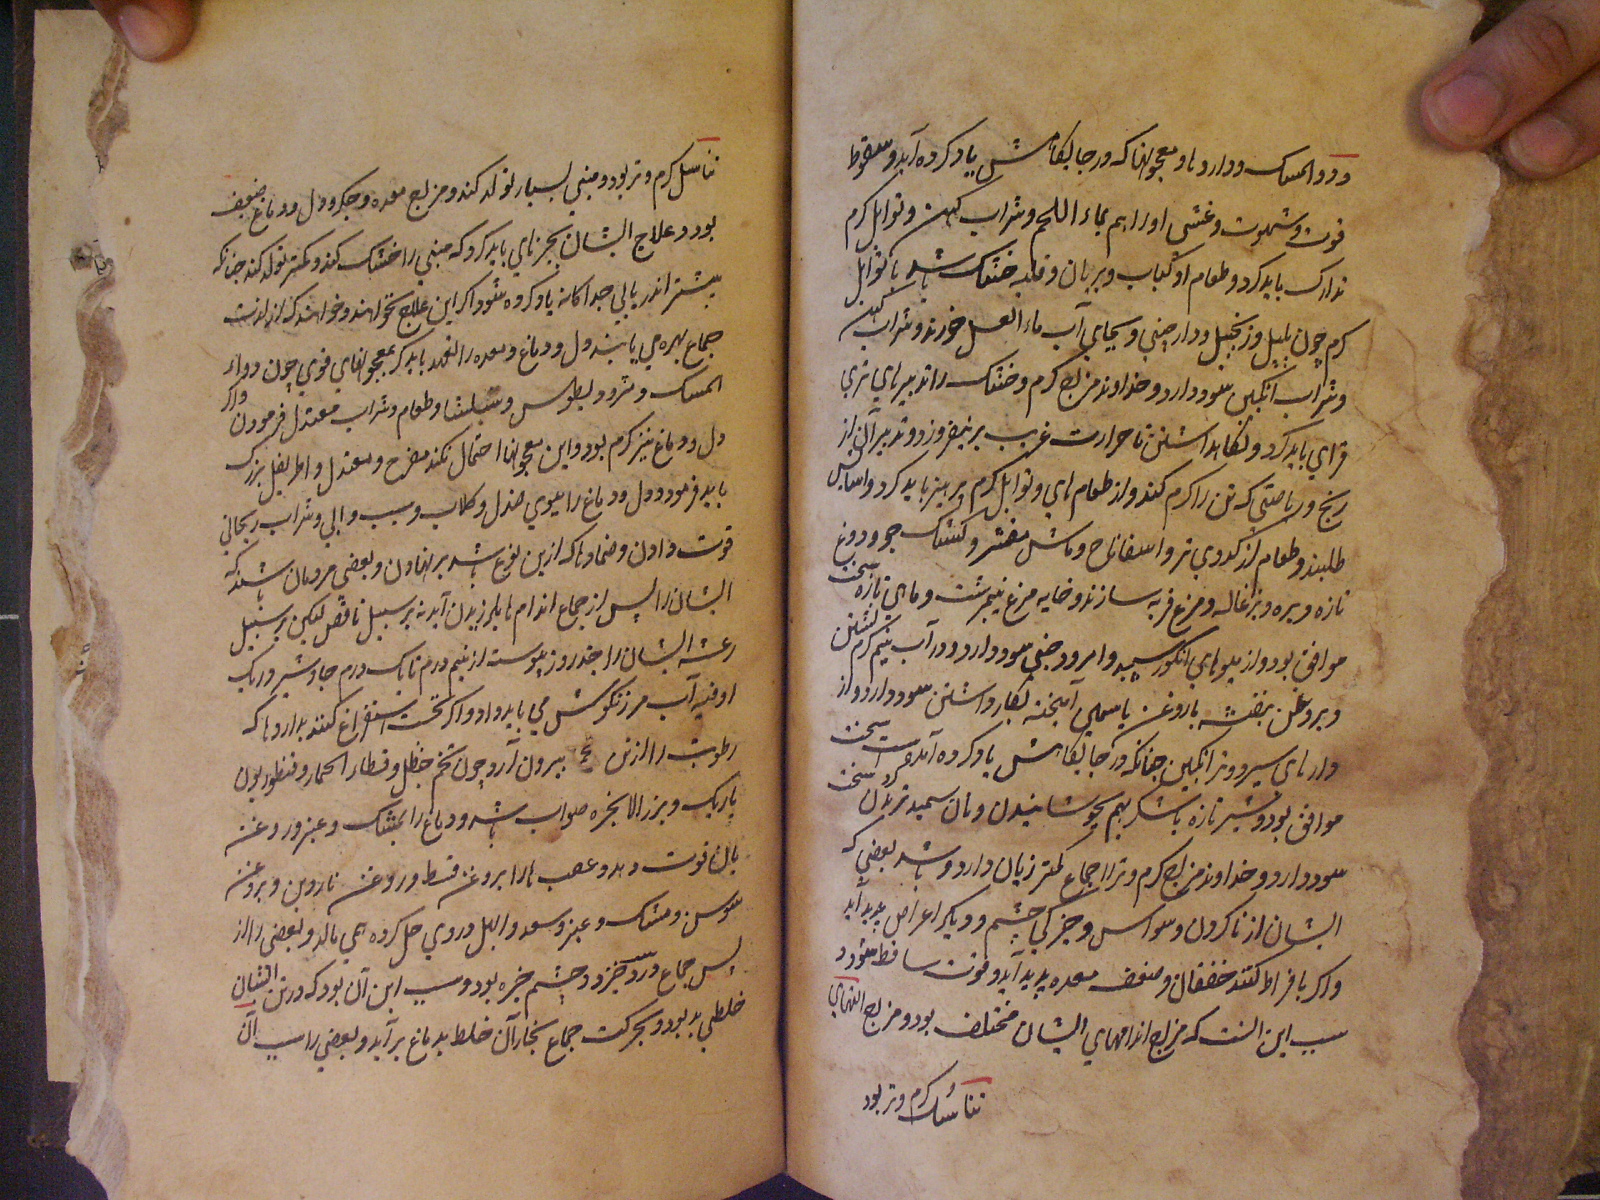 و دواء المسک و داروها و معجونها که در جایگاهش یاد کرده آید و سقوط
قوت و شهوت و غشی او را هم بماء اللحم و شراب کهن و توابل گرم
تدارک باید کرد و طعام او کباب و بریان و قلیه خشک باشد با توابل
گرم چون پلپل و زنجبیل و دارچینی و بجای آب ماء العسل خورند و شراب کهن
و شراب انگبین سود دارد و خداوند مزاج گرم و خشک را تدبیرهای تری
فزای باید کرد و نگاه داشتن تا حرارت غریب برنیفروزد و تدبیر آن از
رنج و ریاضتی که تن را گرم کند و از طعام های و توابل گرم پرهیز باید کرد و آسایش
طلبند و طعام از کدوی تر و اسفاناخ و ماش مقشر و کشک جو و دوغ
تازه و بره و بزغاله و مرغ فربه سازند و خایه مرغ نیمرشت و ماهی تازه سخت
موافق بود و از میوهای انگور سپید و امرود چینی سود دارد و در آب نیم گرم نشستن
و بروغن بنفشه با روغن یاسمین آمیخته بکار داشتن سود دارد و از
داروهای سیر و ترانگبین چنانکه در جایگاهش یاد کرده آمدست سخت
موافق بود و شیر تازه با شکر بهم بجوشانیدن و نان سمید ترید کردن سخت
سود دارد و خداوند مزاج گرم و تر را جماع کمتر زیان دارد و باشد بعضی که
ایشان از ناکردن وسواس و خیرگی چشم و دیگر اعراض پدید آید
و اگر بافراط کنند خفقان و ضعف معده پدید آید و قوت ساقط شود و
سبب این آنست که مزاج اندامهای ایشان مختلف بود و مزاج التهای
تناسل گرم و تر بود
تناسل گرم و تر بود و منی بسیار تولد کند و مزاج معده و جگر و دل و دماغ ضعیف
بود و علاج ایشان بچیزهای باید کرد که منی را خشک کند و کمتر تولد کند چنانکه
پیشتر اندر بابی جداگانه یاد کرده شود و اگر این علاج نخواهند و خواهند که از لذت
جماع بهره می یابند دل و دماغ و معده را تعهد باید کرد بمعجونهای قوی چون دواء
المسک و مثرودیطوس و شیلثا و طعام و شراب معتدل فرمودن و اگر
دل و دماغ نیز گرم بود و این معجونها احتمال نکند مفرح و معتدل و اطریفل بزرگ
باید فرمود و دل و دماغ را ببوی صندل و گلاب و سیب و ابی و شراب ریحانی
قوت دادن و ضمادها که ازین نوع باشد برنهادن و بعضی مردمان باشند که
ایشان را پس از جماع اندام ها بلرزیدن آید نه بر سبیل ناقض لیکن بر سبیل
رعشه ایشان را چند روز پیوسته از نیم درم تا یک درم جاوشیر در یک
اوقیه آب مرزنگوش می باید داد و اگر نخست استفراغ کنند بداروها که
رطوبت را از تن بیرون آرد چون تخم حنظل و قثاء الحمار و قنطوریون
باریک و بزر الانجره صواب باشد و دماغ را بمشک و عنبر و روغن
بان قوت دهد و عصب ها را بروغن قسط و روغن ناردین و بروغن
سوسن و مشک و عنبر و سعد و ابهل دروی حل کرده می مالد و بعضی را از
پس جماع درد سر خیزد و چشم خیره بود و سبب این آن بود که در تن ایشان
خلطی بد بود و بحرکت جماع بخار آن خلط بدماغ برآید و بعضی را سبب آن